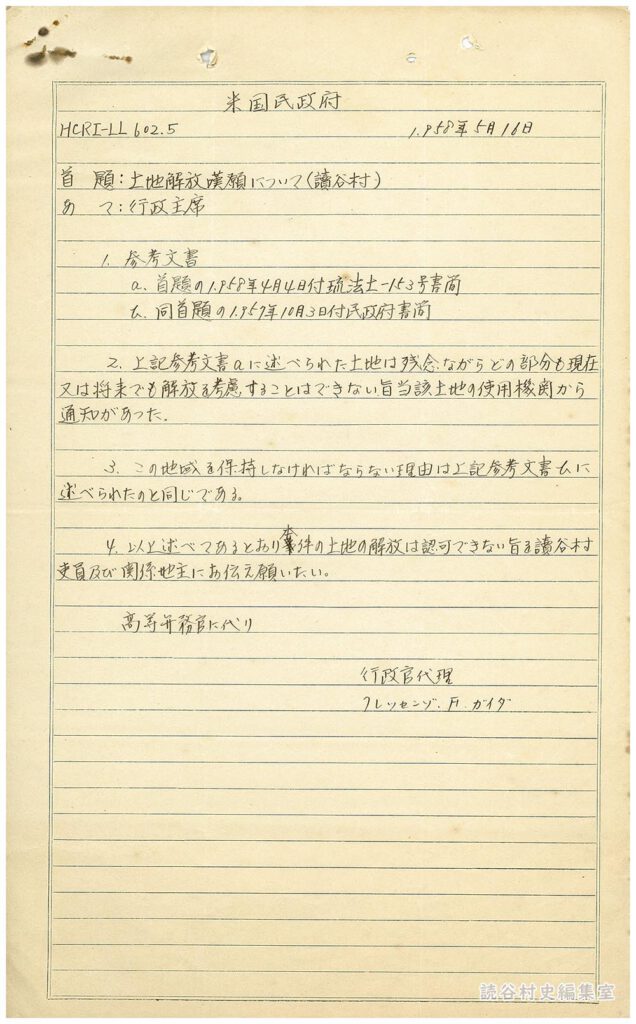 米国民政府
HCRI-LL 602.5 1.958年5月16日
首題:土地解放嘆願について(讀谷村)
あて:行政主席
1. 参考文書
a. 首題の1.958年4月4日付琉法土-153号書簡
b. 同首題の1.957年10月3日付民政府書簡
2. 上記参考文書aに述べられた土地は残念ながらどの部分も現在
又は将来でも解放を考慮することはできない旨当該土地の使用機関から
通知があった.
3. この地域を保持しなければならない理由は上記参考文書bに
述べられたのと同じである。
4. 以上述べてあるとおり本件の土地の解放は認可できない旨を讀谷村
吏員及び関係地主にお伝え願いたい。
高等弁務官に代り
行政官代理
フレッセンゾ. F. ガイダ
読谷村史編集室